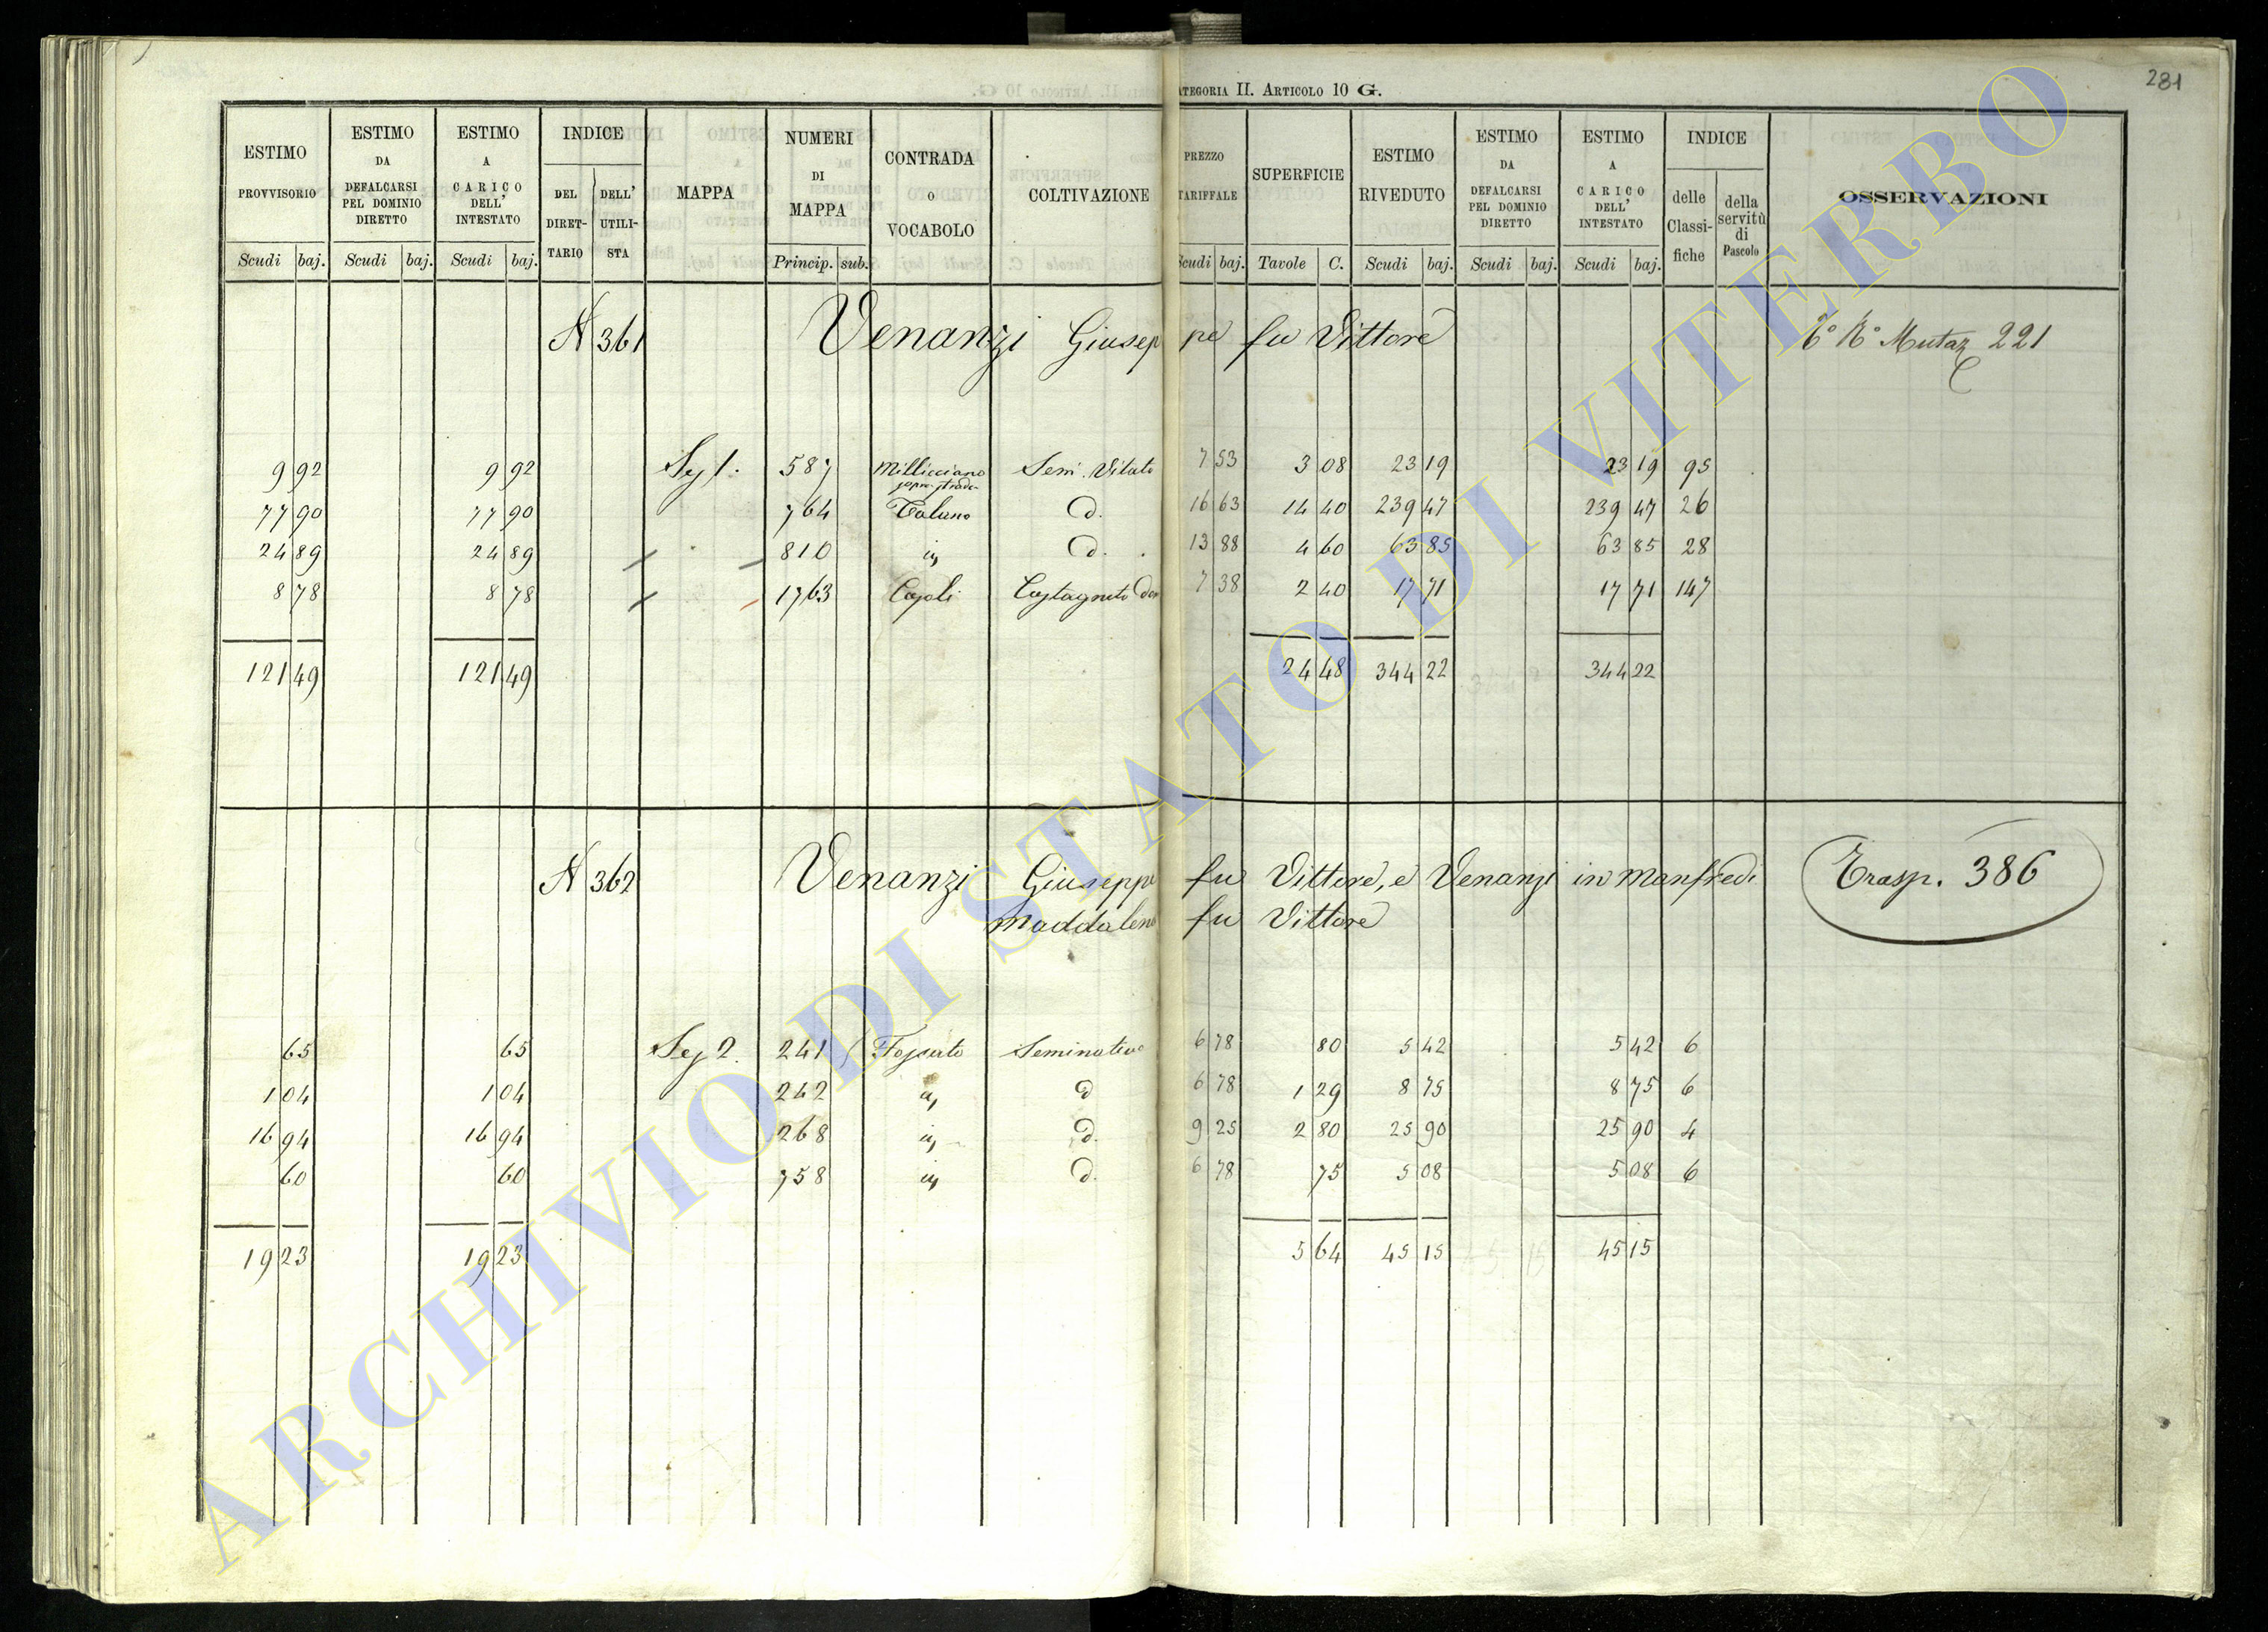 281
CATEGORIA II. ARTICOLO 10 G.
ESTIMO PROVVISORIO Scudi baj.
ESTIMO DA DEFALCARSI PEL DOMINIO DIRETTO Scudi baj.
ESTIMO A CARICO DELL' INTESTATO Scudi baj.
INDICE DEL DIRET-TARIO DELL' UTILI-STA
MAPPA
NUMERI DI MAPPA Princip. sub.
CONTRADA O VOCABOLO
COLTIVAZIONE
PREZZO TARIFFALE Scudi baj.
SUPERFICIE Tavole C.
ESTIMO RIVEDUTO Scudi baj.
ESTIMO DA DEFALCARSI PEL DOMINIO DIRETTO Scudi baj.
ESTIMO A CARICO DELL' INTESTATO Scudi baj.
INDICE delle Classi-fiche della servitù di Pascolo
OSSERVAZIONI
N 361 Venanzi Giuseppe fu Vittore Mutaz 221
9 92 9 92 Sez 1. 587 Millicciano Sem. Vitato 7 53 3 08 23 19 23 19 95
sopra strada
77 90 77 90 764 d. 16 63 14 40 239 47 239 47 26
24 89 24 89 810 d. 13 88 4 60 63 85 63 85 28
8 78 8 78 1763 Castagneto 7 38 2 40 17 71 17 71 147
121 49 121 49 24 48 344 22 344 22
N 362 Venanzi Giuseppe fu Vittore, e Venanzi in Manfredi Trasp. 386
Maddalena fu Vittore
65 65 Sez 2. 241 Fossato Seminativo 6 78 80 5 42 5 42 6
1 04 1 04 242 d 6 78 1 29 8 75 8 75 6
16 94 16 94 268 d. 9 25 2 80 25 90 25 90 4
60 60 758 d. 6 78 75 5 08 5 08 6
19 23 19 23 5 64 45 15 45 15
ARCHIVIO DI STATO DI VITERBO